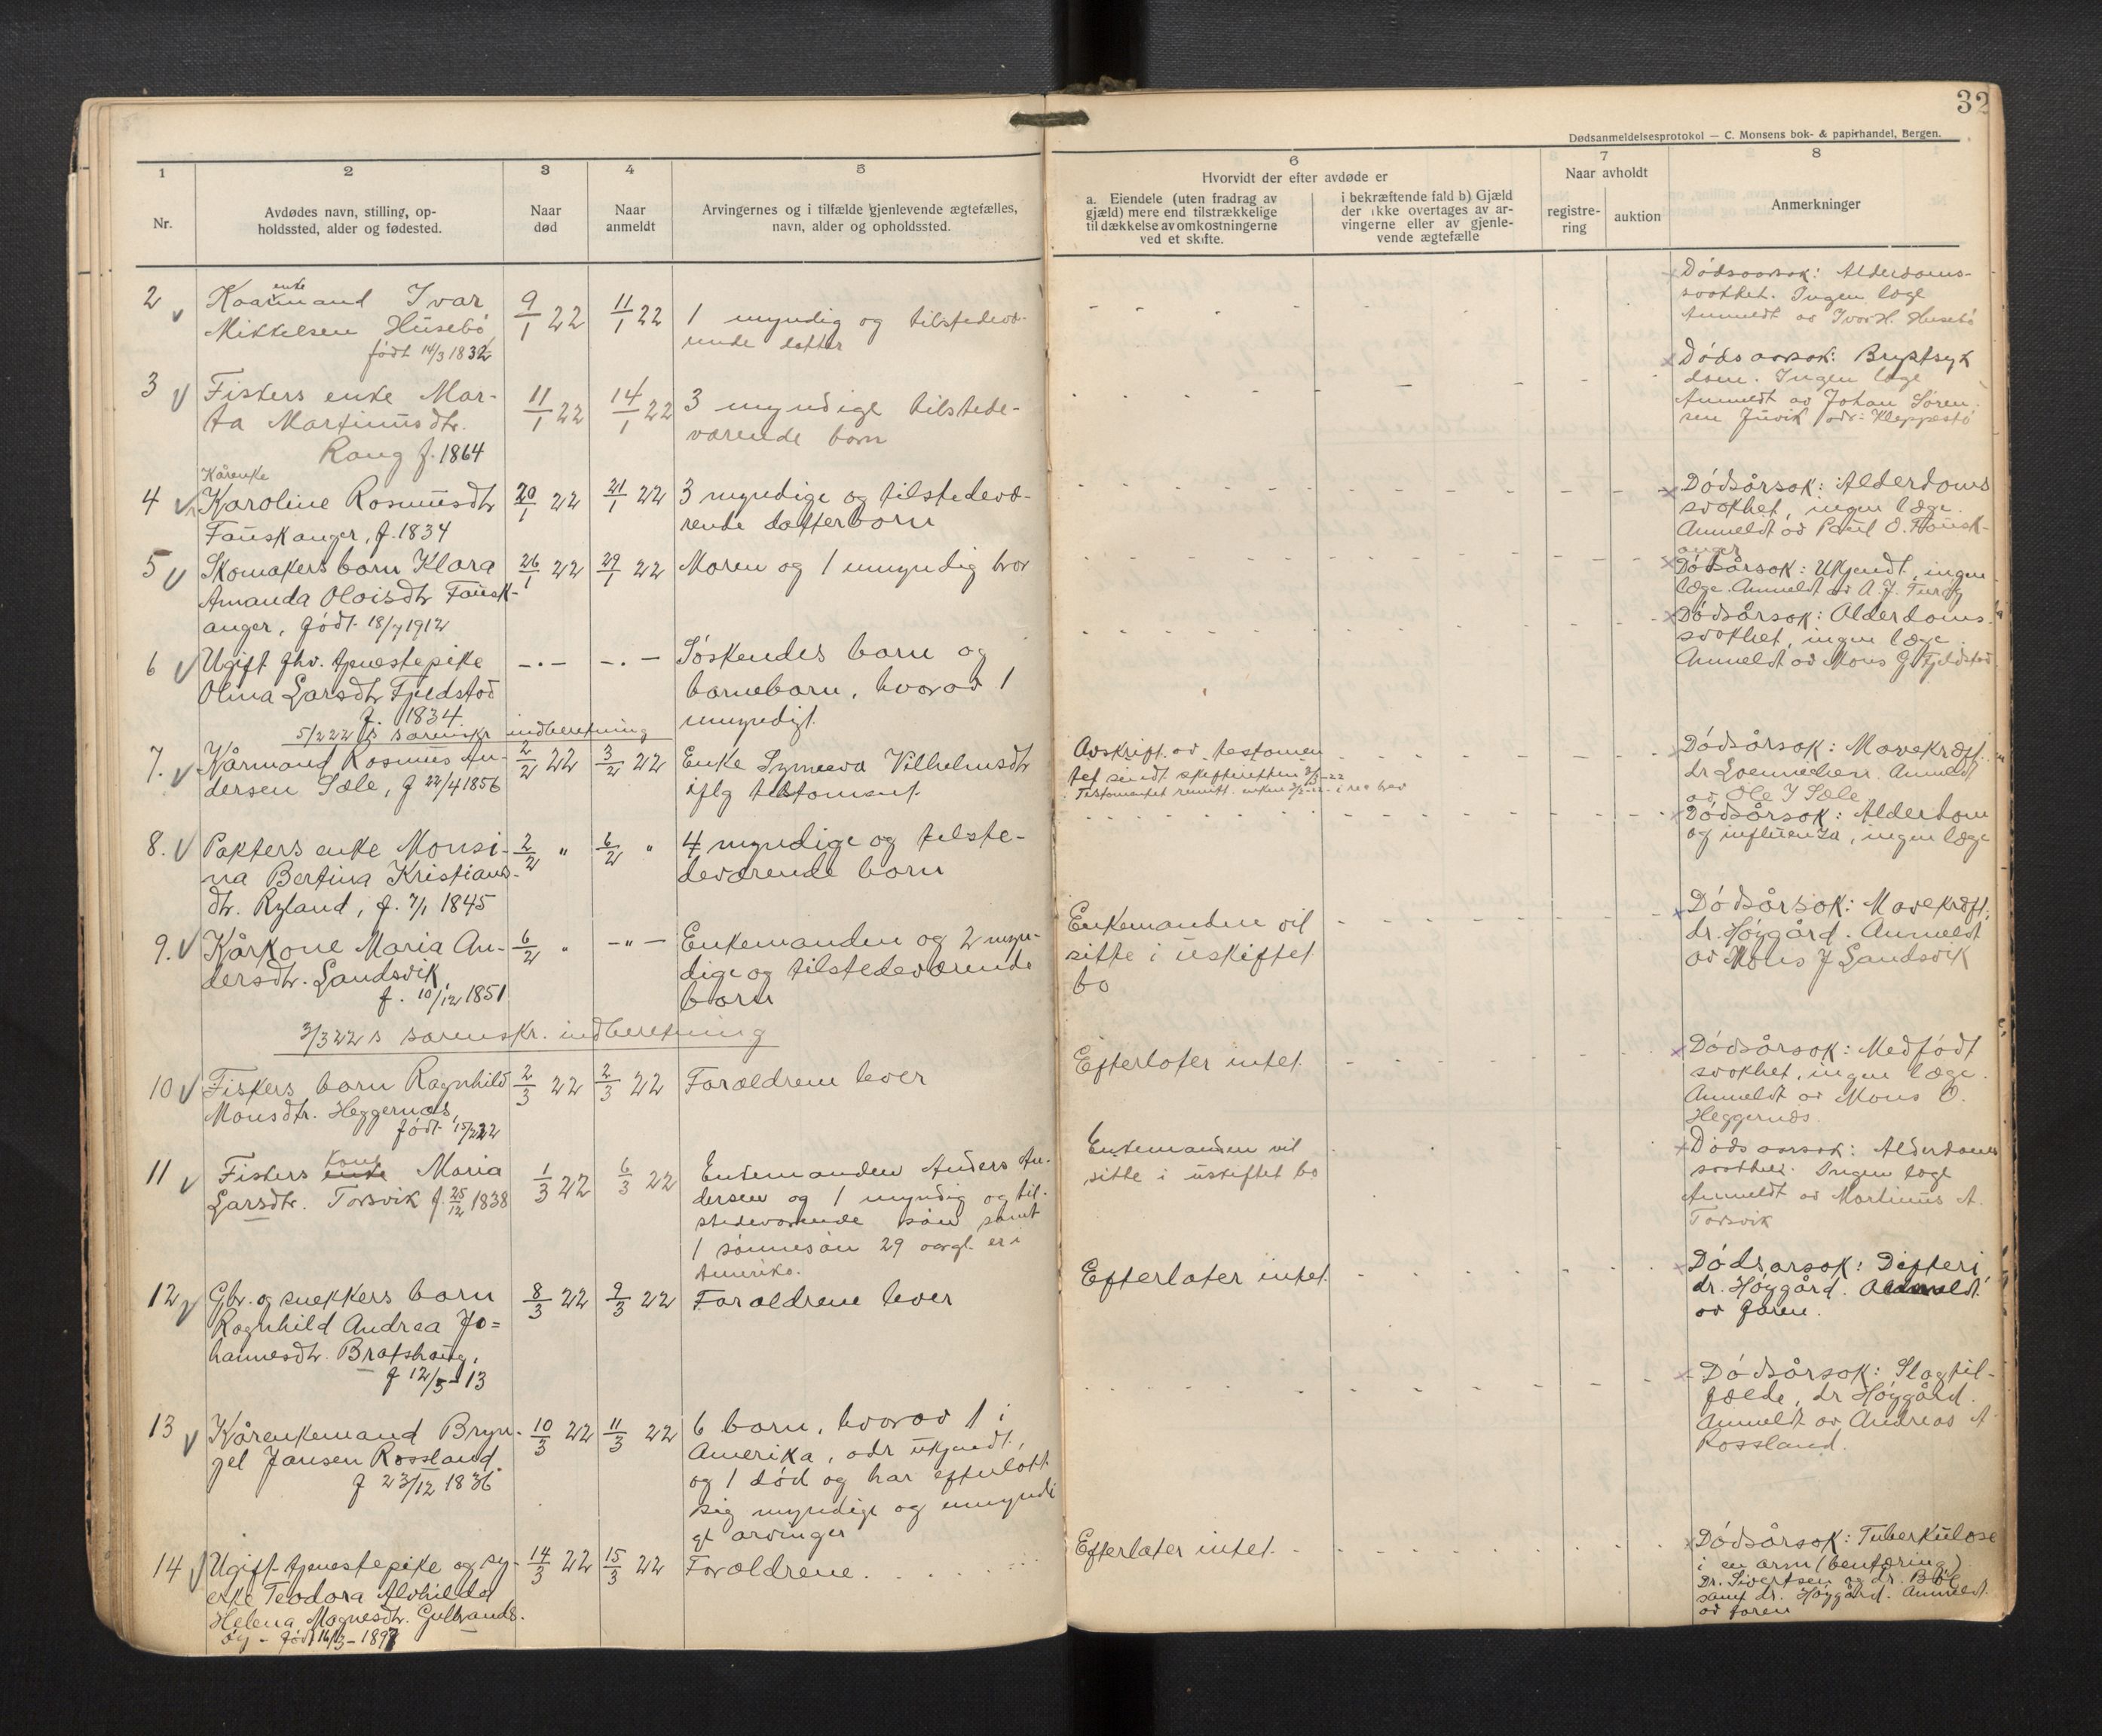 32
Dødsanmeldelsesprotokol — C. Monsens bok- & papirhandel, Bergen.
1
2
3
4
5
6
7
8
Nr.
Avdødes navn, stilling, op-
holdssted, alder og fødested.
Naar
død
Naar
anmeldt
Arvingernes og i tilfælde gjenlevende ægtefælles,
navn, alder og opholdssted.
Hvorvidt der efter avdøde er
a. Eiendele (uten fradrag av
gjæld) mere end tilstrækkelige
til dækkelse av omkostningerne
ved et skifte.
i bekræftende fald b) Gjæld
der ikke overtages av ar-
vingerne eller av gjenle-
vende ægtefælle
Naar avholdt
registre-
ring
auktion
Anmerkninger
2
enke
Kaarmand Ivar
Mikkelsen Husebø
født 14/3 1832
9/1 22
11/1 22
1 myndig og tilstedevæ-
rende datter
Dødsaarsak: Alderdoms-
svakhet. Ingen læge
Anmeldt av Ivar H. Husebø
3
Fiskers enke Mar-
ta Martinusdtr.
Rong f. 1864
11/1 22
14/1 22
3 myndige tilstede-
værende barn
Dødsaarsak: Brystsyk
dom. Ingen læge
Anmeldt av Johan Søren-
sen Juvik adr: Kleppestø
4
Kårenke
Karoline Rasmusdtr
Fauskanger, f. 1834
20/1 22
21/1 22
3 myndige og tilstedevæ-
rende datterbarn
Dødsårsak: Alderdoms
svakhet, ingen læge.
Anmeldt av Paul O. Fausk-
anger
5
Skomakers barn Klara
Amanda Olaisdtr Fausk-
anger, født 18/7 1912
26/1 22
29/1 22
Moren og 1 umyndig bror
Dødsårsak: Ukjendt, ingen
læge. Anmeldt av A. J. Turøy
6
Ugift fhv. tjenestepike
Olina Larsdtr Fjeldstad
f. 1834.
—.—
—.—
Søskendes barn og
barnebarn, hvorav 1
umyndigt.
Dødsårsak: Alderdoms-
svakhet, ingen læge.
Anmeldt av Mons J. Fjeldstad
5/2 22 til sorenskr indberetning
7.
Kårmand Rasmus An-
dersen Sæle, f 22/4 1856
2/2 22
3/2 22
Enke Synneva Vilhelmsdtr
iflg testament.
Avskrift av testamen
tet sendt skifteretten 2/3-22
Testamentet remitt. enken i rek brev
Dødsårsak: Mavekræft.
dr Loennechen. Anmeldt
av Ole I Sæle
8.
Pakters enke Monsi-
na Bertina Kristians-
dtr. Ryland, f. 7/1 1845
2/2 "
6/2 "
4 myndige og tilste-
deværende barn
Dødsårsak: Alderdom
og influenza, ingen læge
9.
Kårkone Maria An-
dersdtr. Landsvik,
f. 10/12 1851
6/2 "
—"—
Enkemanden og 2 myn-
dige og tilstedeværende
barn
Enkemanden vil
sitte i uskiftet
bo
Dødsårsak: Mavekræft,
dr. Høygård. Anmeldt
av Mons J Landsvik
3/3 22 s sorenskr. indberetning
10
Fiskers barn Ragnhild
Monsdtr. Heggernæs,
født 15/2 22
2/3 22
2/3 22
Forældrene lever
Efterlater intet.
Dødsårsak: Medfødt
svakhet, ingen læge.
Anmeldt av Mons O.
Heggernæs.
11
Fiskers enke kone Maria
Larsdtr. Torsvik f. 25/12 1838
1/3 22
6/3 22
Enkemanden Anders An-
dersen og 1 myndig og til-
stedeværende søn samt
1 sønnesøn 29 aargl. er i
Amerika.
Enkemanden vil
sitte i uskiftet bo
Dødsaarsak: Alderdoms
svakhet. Ingen læge
Anmeldt av Martinus A.
Torsvik
12
Gbr. og snekkers barn
Ragnhild Andrea Jo=
hannesdtr. Bratshaug,
f 12/5-13
8/3 22
9/3 22
Forældrene lever
Efterlater intet.
Dødsårsak: Difteri
dr. Høygård. Anmeldt
av faren.
13
Kårenkemand Bryn-
gel Jansen Rossland.
f 23/12 1836
10/3 22
11/3 22
6 barn, hvorav 1 i
Amerika, adr ukjendt,
og 1 død og har efterlatt
sig myndige og umyndi
ge arvinger
Dødsårsak: Slagtil-
fælde, dr Høygård.
Anmeldt av Andreas A
Rossland.
14
Ugift tjenestepike og sy-
erske Teodora Alvhilda
Helena Magnesdtr. Gulbrands-
øy - født 16/3-1897
14/3 22
15/3 22
Forældrene.
Efterlater intet.
Dødsårsak: Tuberkulose
i en arm (bentæring).
Dr. Sivertsen og dr. Bøe
samt dr. Høygård. Anmeldt
av faren